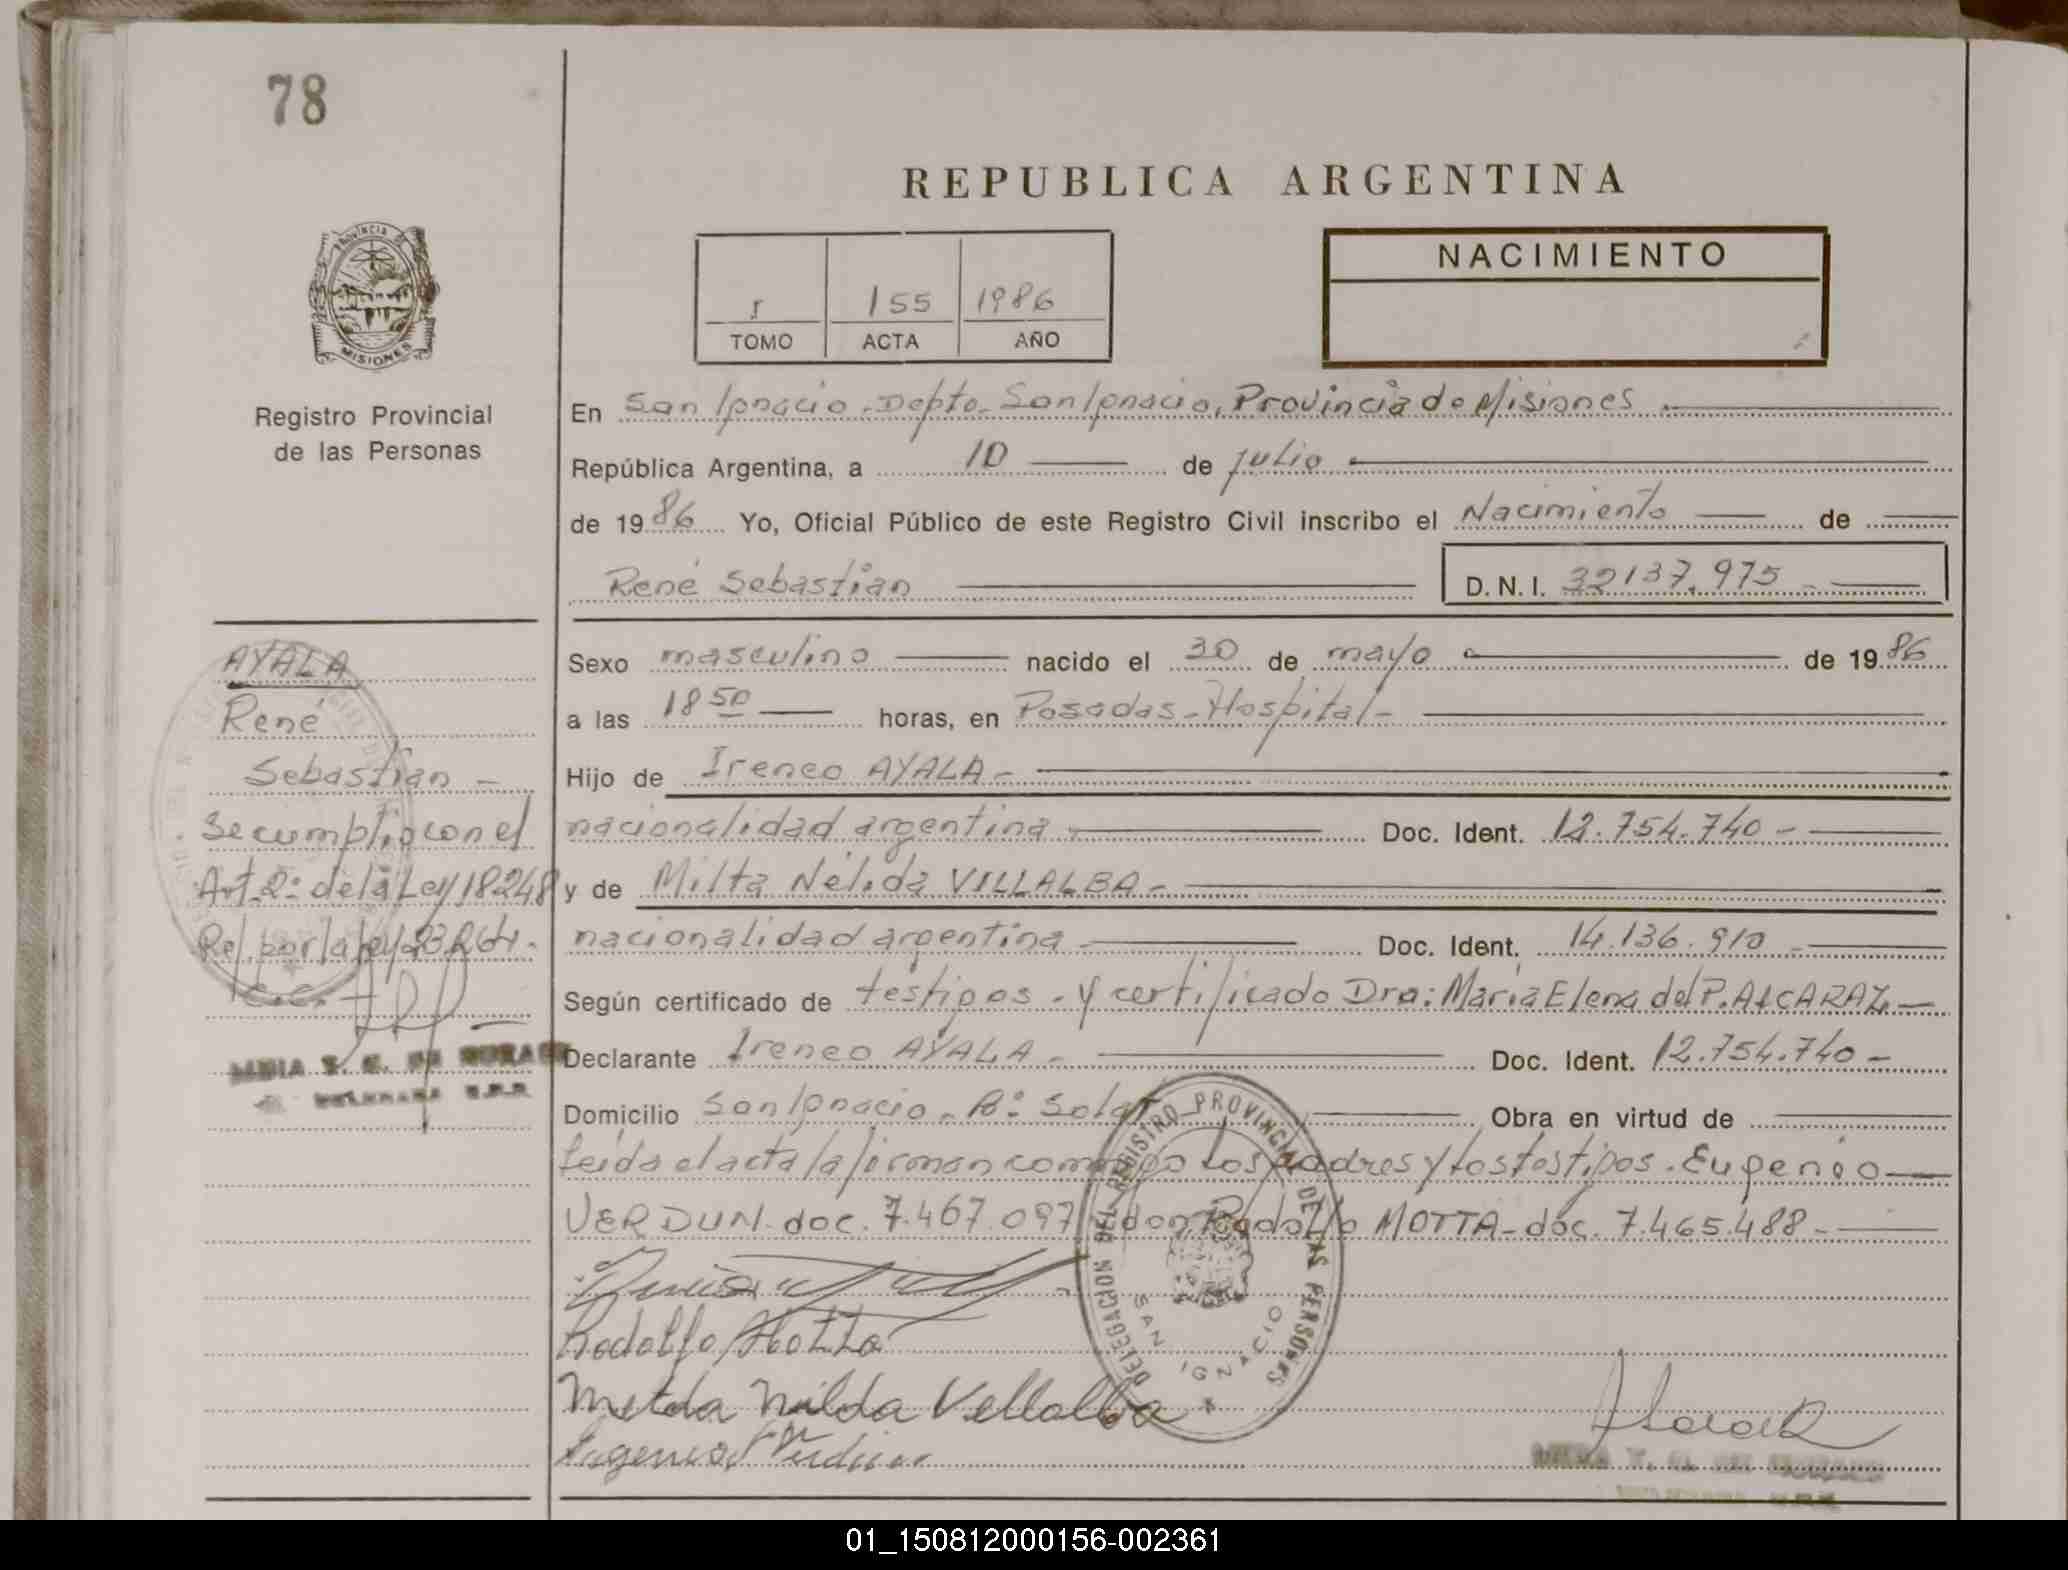 78
REPUBLICA ARGENTINA
PROVINCIA DE
MISIONES
Registro Provincial
de las Personas
I 155 1986
TOMO ACTA AÑO
NACIMIENTO
En San Ignacio - Depto. San Ignacio, Provincia de Misiones.
República Argentina, a 10 de julio
de 1986 Yo, Oficial Público de este Registro Civil inscribo el Nacimiento de
René Sebastian D. N. I. 32137.975 -
Sexo masculino nacido el 30 de mayo de 1986
a las 18 50 horas, en Posadas - Hospital -
Hijo de Ireneo AYALA -
nacionalidad argentina - Doc. Ident. 12.754.740 -
y de Milta Nélida VILLALBA -
nacionalidad argentina - Doc. Ident. 14.136.910 -
Según certificado de testigos - y certificado Dra: María Elena del P. ALCARAZ -
Declarante Ireneo AYALA - Doc. Ident. 12.754.740 -
Domicilio San Ignacio - B° Obra en virtud de
Leída el acta la firman conmigo los padres y los testigos. Eugenio
VERDUN - doc. 7.467.097 don Rodolfo MOTTA - doc. 7.465.488 -
Rodolfo Motta
Melda Nilda Vellalba
DELEGACION DEL REGISTRO PROVINCIAL DE LAS PERSONAS
SAN IGNACIO
AYALA
René
Sebastian -
Se cumplio con el
Art. 2° de la Ley 18248
Ref. por la ley
01_150812000156-002361